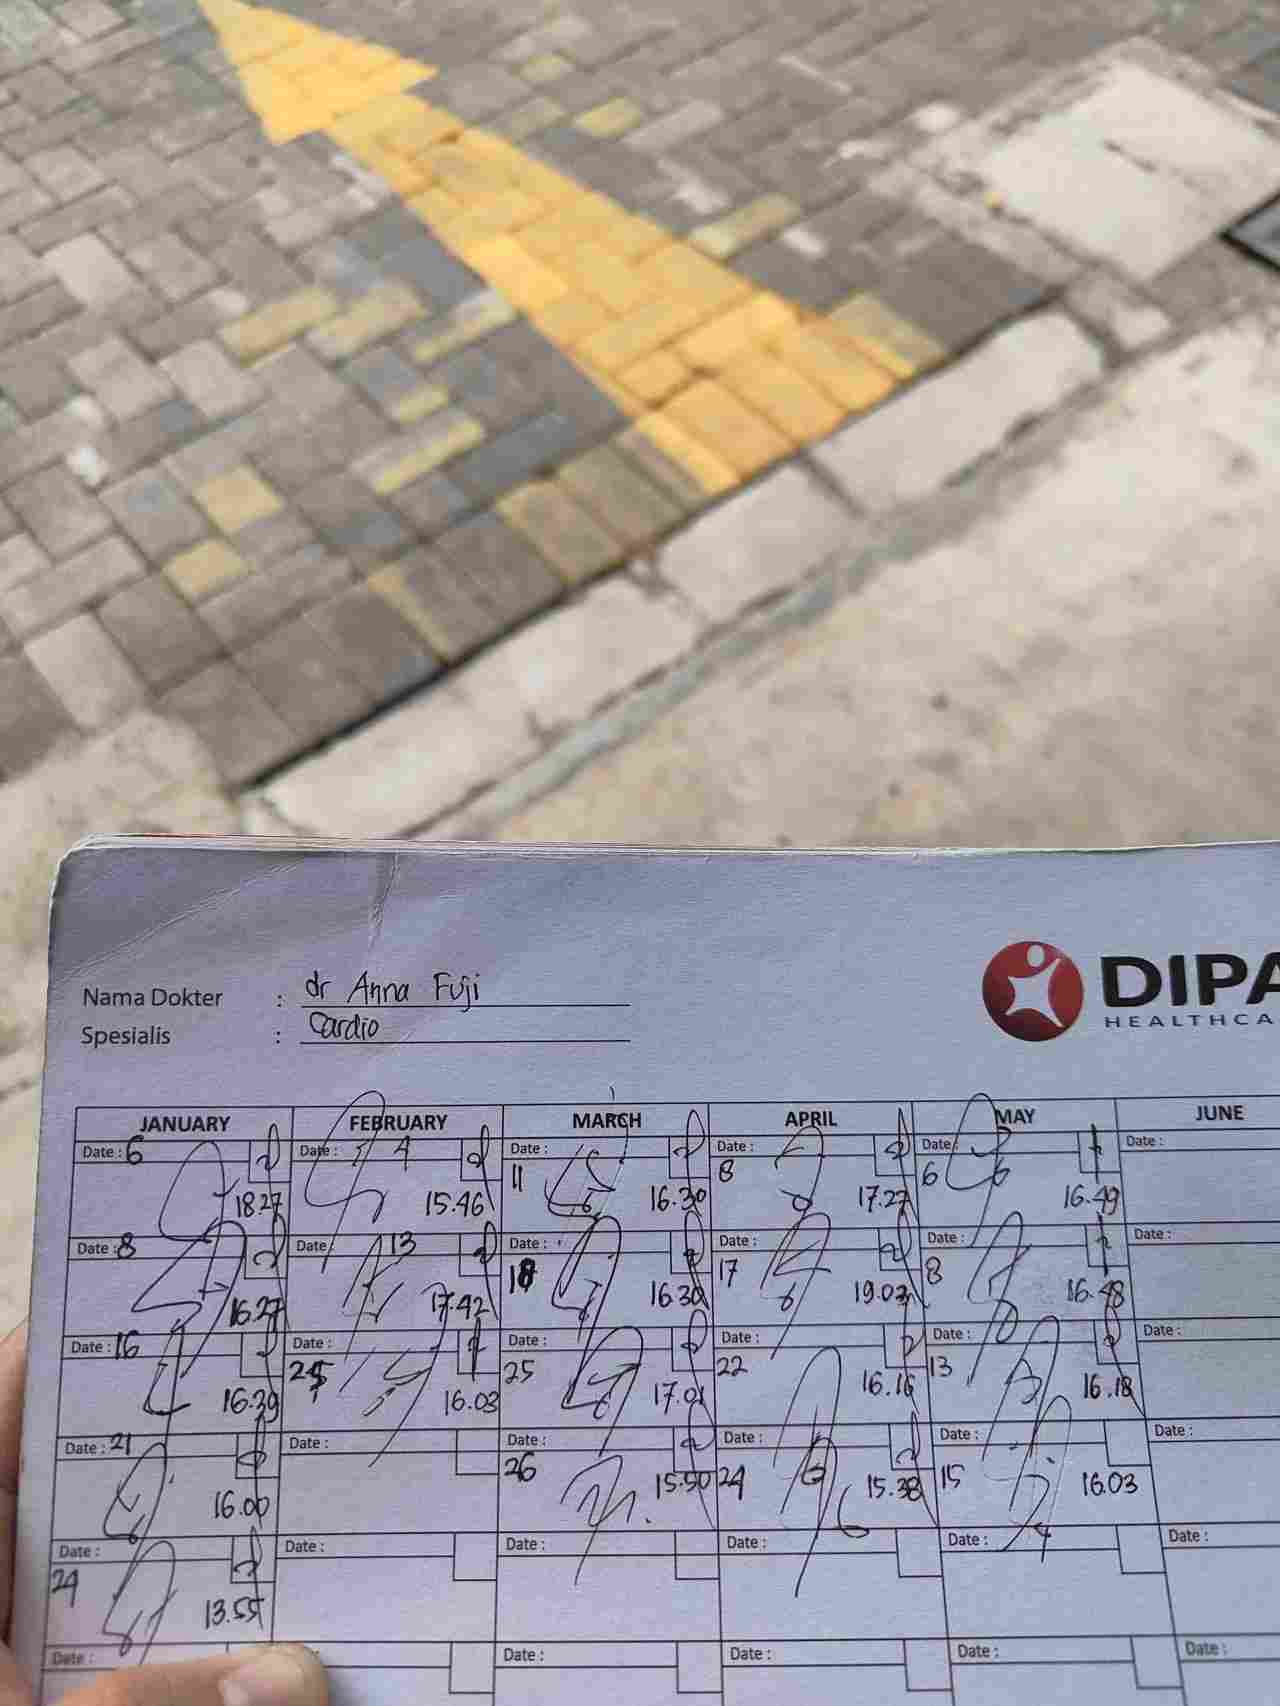 Nama Dokter : dr Anna Fuji
Spesialis : Cardio
DIPA
HEALTHCA
JANUARY FEBRUARY MARCH APRIL MAY JUNE
Date : 6 Date : 4 Date : 11 Date : 8 Date : 6 Date :
18.27 15.46 16.30 17.27 16.49
Date : 8 Date : 13 Date : 18 Date : 17 Date : 8 Date :
16.27 17.42 16.30 19.03 16.48
Date : 16 Date : 25 Date : 25 Date : 22 Date : 13 Date :
16.39 16.03 17.01 16.16 16.18
Date : 21 Date : Date : 26 Date : 24 Date : 15 Date :
16.00 15.50 15.38 16.03
Date : 24 Date : Date : Date : Date : Date :
13.55
Date : Date : Date : Date : Date :